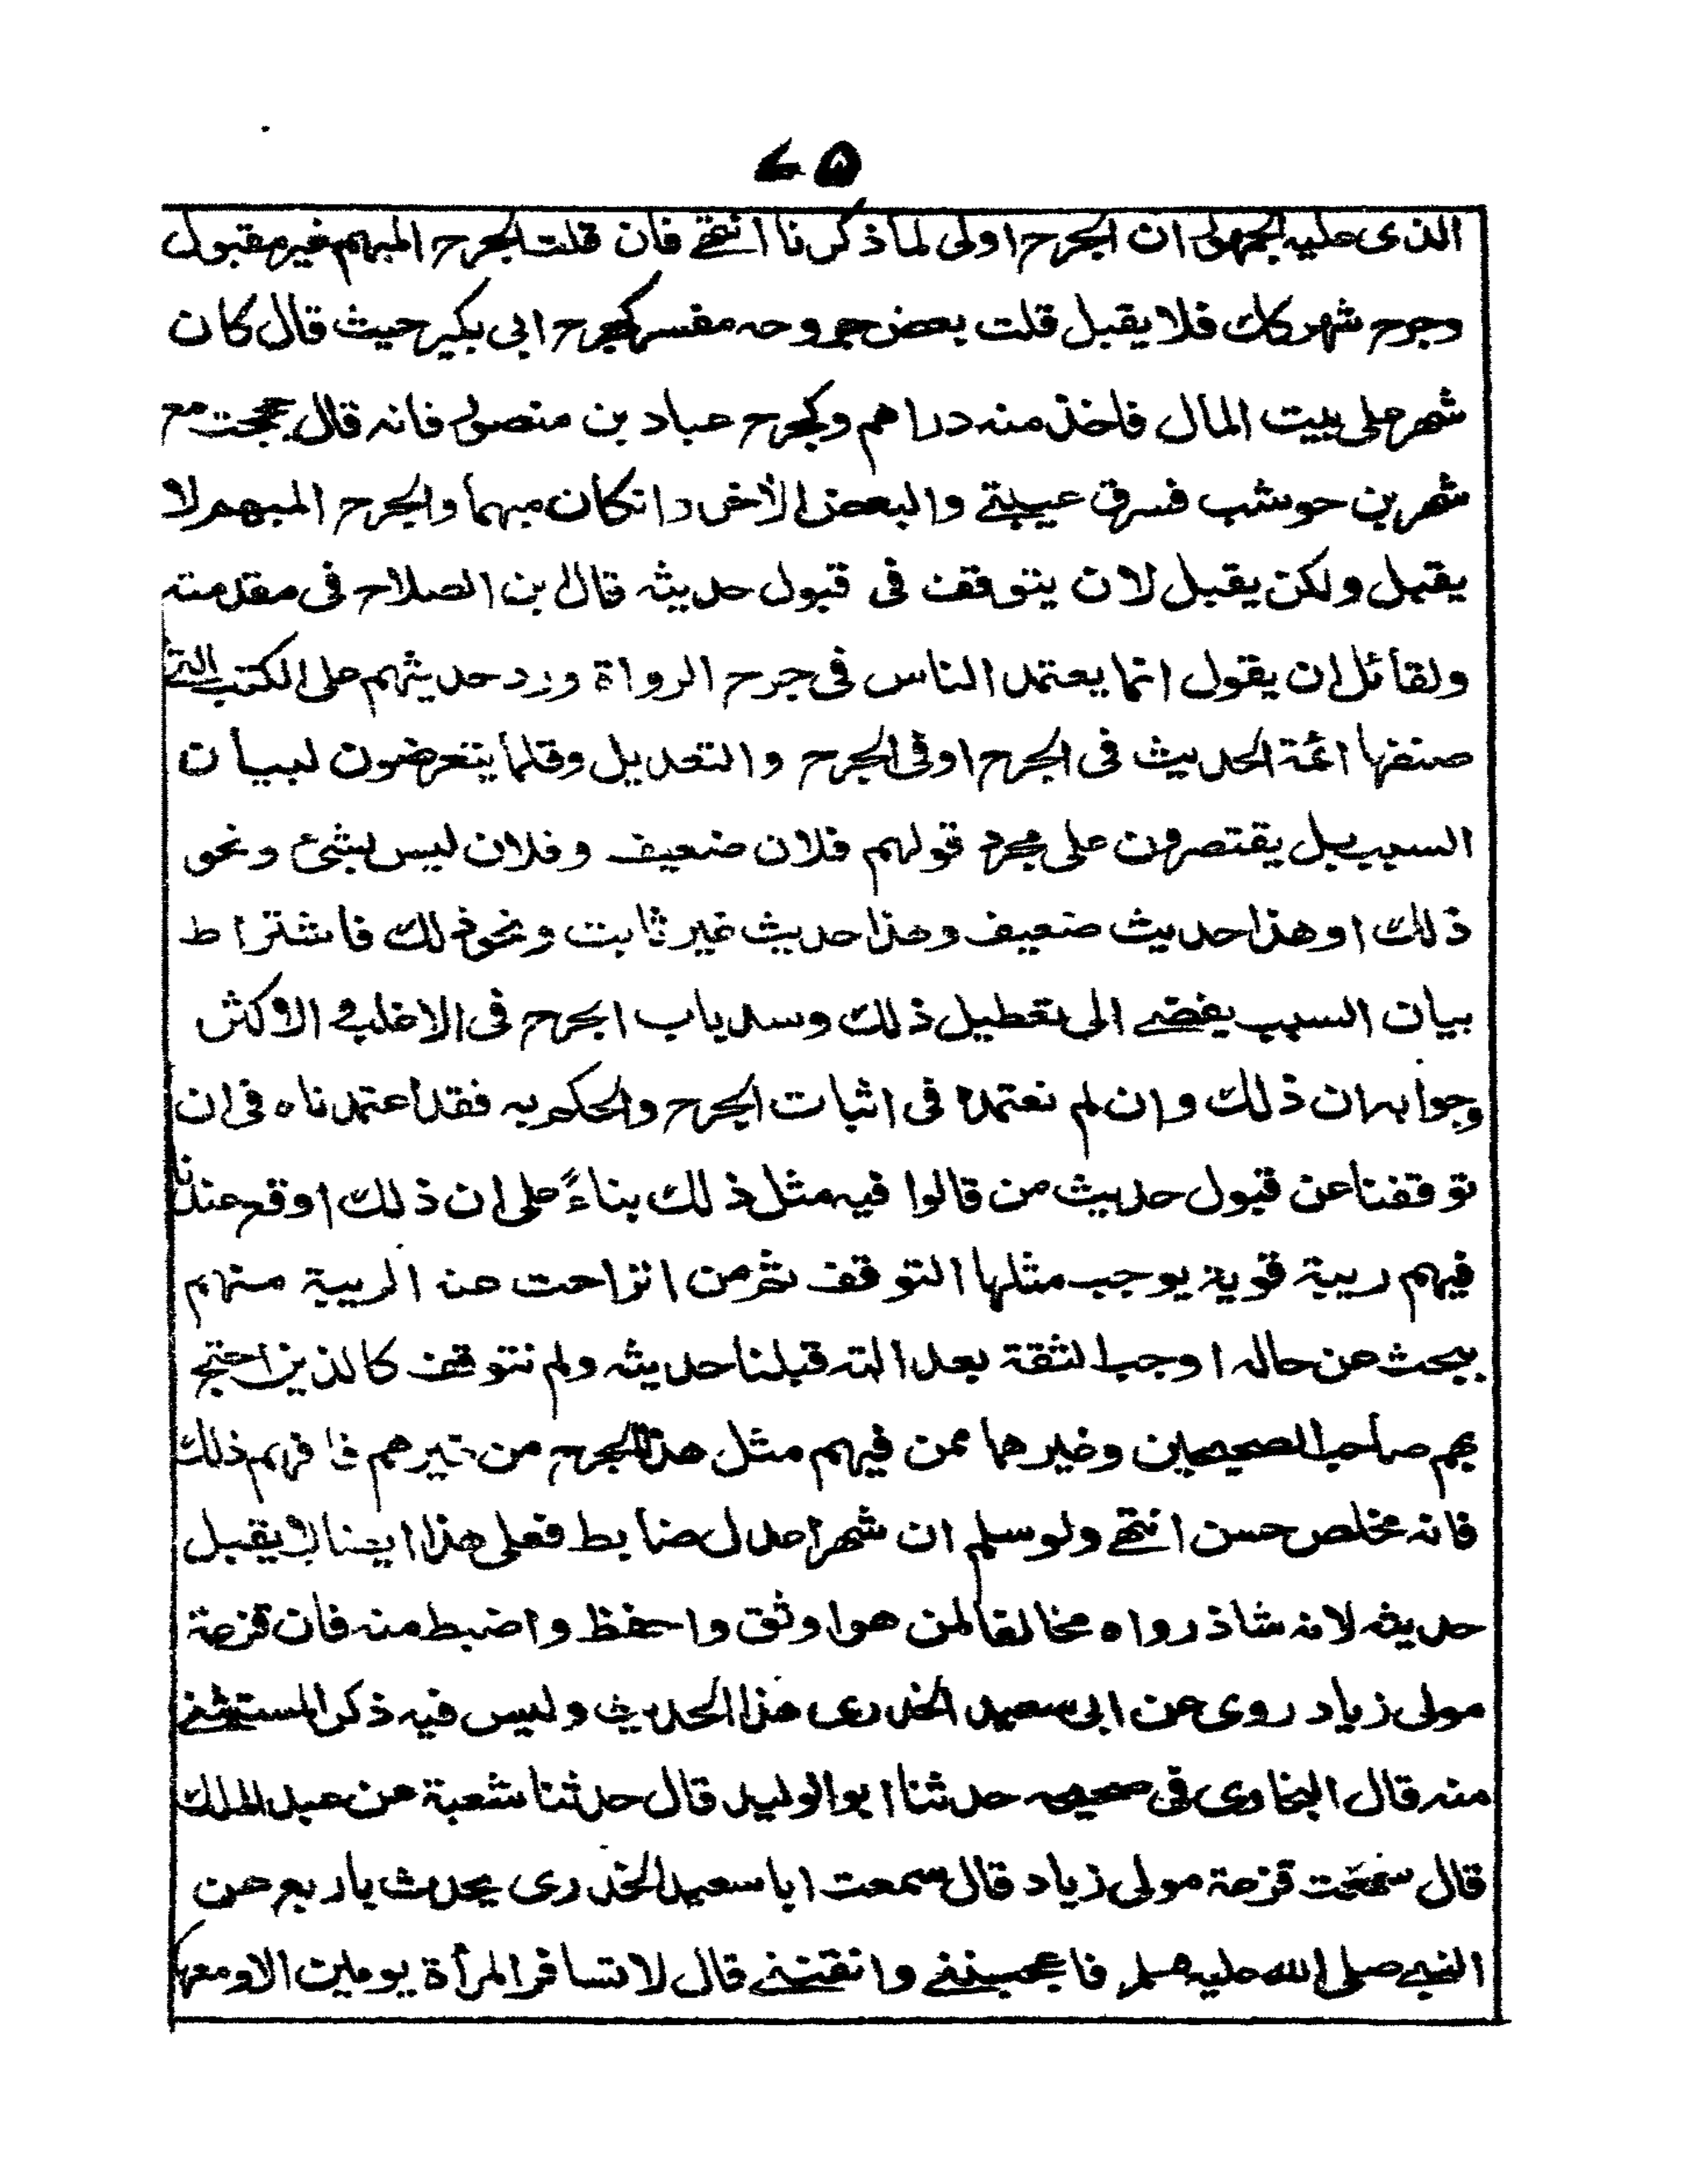 ٤٥
الذى عليه الجمهور ان الجرح اولى لما ذكرنا انتهى فان قلت الجرح المبهم غير مقبول
وجرح شهر كك فلا يقبل قلت بعض جروحه مفسر كجرح ابى بكير حيث قال كان
شهر على بيت المال فاخذ منه دراهم وكجرح عباد بن منصور فانه قال حججت مع
شهر بن حوشب فسرق عيبتى والبعض الأخر وانكان مبهما والجرح المبهم لا
يقبل ولكن يقبل لان يتوقف فى قبول حديثه قال ابن الصلاح فى مقدمته
ولقائل ان يقول انما يعتمد الناس فى جرح الرواة ورد حديثهم على الكتب التى
صنفها ائمة الحديث فى الجرح او فى الجرح والتعديل وقلما يتعرضون لبيان
السبب بل يقتصرون على مجرد قولهم فلان ضعيف وفلان ليس بشئ ونحو
ذلك او هذا حديث ضعيف وهذا حديث غير ثابت ونحو ذلك فاشتراط
بيان السبب يفضى الى تعطيل ذلك وسد باب الجرح فى الاغلب و الاكثر
وجوابه ان ذلك وان لم نعتمده فى اثبات الجرح والحكم به فقد اعتمدناه فى ان
توقفنا عن قبول حديث من قالوا فيه مثل ذلك بناءً على ان ذلك اوقع عندنا
فيهم ريبة قوية يوجب مثلها التوقف ثم من انزاحت عنه الريبة منهم
ببحث عن حاله اوجب الثقة بعدالته قبلنا حديثه ولم نتوقف كالذين احتج
بهم صاحبا الصحيحين وغيرهما ممن فيهم مثل هذا الجرح من غيرهم فافهم ذلك
فانه مخلص حسن انتهى ولو سلم ان شهرا عدل ضابط فعلى هذا ايضا لا يقبل
حديثه لانه شاذ رواه مخالفا لمن هو اوثق واحفظ واضبط منه فان قزعة
مولى زياد روى عن ابى سعيد الخدرى هذا الحديث وليس فيه ذكر المستثنى
منه قال البخاوى فى صحيحه حدثنا ابو الوليد قال حدثنا شعبة عن عبد الملك
قال سمعت قزعة مولى زياد قال سمعت ابا سعيد الخدرى يحدث باربع عن
النبى صلى الله عليه وسلم فاعجبننى وانقننى قال لا تسافر المرأة يومين الا ومعها